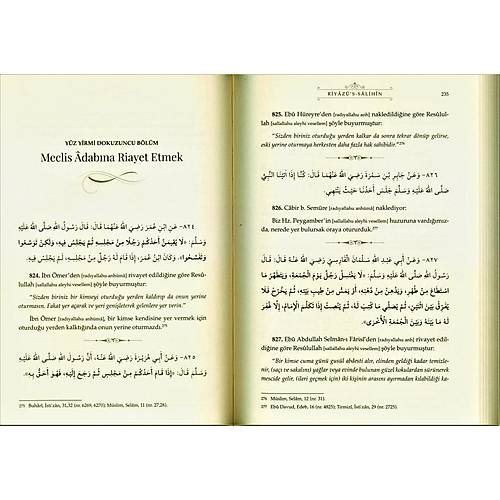 YÜZ YİRMİ DOKUZUNCU BÖLÜM
Meclis Âdabına Riayet Etmek
٨٢٤- عَنِ ابْنِ عُمَرَ رَضِيَ اللّٰهُ عَنْهُمَا قَالَ: قَالَ رَسُولُ اللّٰهِ صَلَّى اللّٰهُ عَلَيْهِ
وَسَلَّمَ: «لَا يُقِيمَنَّ أَحَدُكُمْ رَجُلًا مِنْ مَجْلِسِهِ ثُمَّ يَجْلِسُ فِيهِ، وَلَكِنْ تَوَسَّعُوا
وَتَفَسَّحُوا». وَكَانَ ابْنُ عُمَرَ، إِذَا قَامَ لَهُ رَجُلٌ مِنْ مَجْلِسِهِ لَمْ يَجْلِسْ فِيهِ.
824. İbn Ömer'den [radıyallahu anhümâ] rivayet edildiğine göre Resû-
lullah [sallallahu aleyhi vesellem] şöyle buyurmuştur:
"Sizden biriniz bir kimseyi oturduğu yerden kaldırıp da onun yerine
oturmasın. Fakat yer açarak ve yeri genişleterek gelenlere yer verin."
İbn Ömer [radıyallahu anhümâ], bir kimse kendisine yer vermek için
oturduğu yerden kalktığında onun yerine oturmazdı.²⁷⁵
٨٢٥- وَعَنْ أَبِي هُرَيْرَةَ رَضِيَ اللّٰهُ عَنْهُ، أَنَّ رَسُولَ اللّٰهِ صَلَّى اللّٰهُ عَلَيْهِ
وَسَلَّمَ قَالَ: «إِذَا قَامَ أَحَدُكُمْ مِنْ مَجْلِسٍ ثُمَّ رَجَعَ إِلَيْهِ، فَهُوَ أَحَقُّ بِهِ».
275 Buhârî, İsti'zân, 31,32 (nr. 6269, 6270); Müslim, Selâm, 11 (nr. 27,28).
RİYÂZÜ'S-SÂLİHÎN
235
825. Ebû Hüreyre'den [radıyallahu anh] nakledildiğine göre Resûlul-
lah [sallallahu aleyhi vesellem] şöyle buyurmuştur:
"Sizden biriniz oturduğu yerden kalkar da sonra tekrar dönüp gelirse,
eski yerine oturmaya herkesten daha fazla hak sahibidir."²⁷⁶
٨٢٦- وَعَنْ جَابِرِ بْنِ سَمُرَةَ رَضِيَ اللّٰهُ عَنْهُمَا قَالَ: كُنَّا إِذَا أَتَيْنَا النَّبِيَّ
صَلَّى اللّٰهُ عَلَيْهِ وَسَلَّمَ جَلَسَ أَحَدُنَا حَيْثُ يَنْتَهِي.
826. Câbir b. Semüre [radıyallahu anhümâ] naklediyor:
Biz Hz. Peygamber'in [sallallahu aleyhi vesellem] huzuruna vardığımız-
da, nerede yer bulursak oraya otururduk.²⁷⁷
٨٢٧- وَعَنْ أَبِي عَبْدِ اللّٰهِ سَلْمَانَ الْفَارِسِيِّ رَضِيَ اللّٰهُ عَنْهُ قَالَ: قَالَ رَسُولُ
اللّٰهِ صَلَّى اللّٰهُ عَلَيْهِ وَسَلَّمَ: «لَا يَغْتَسِلُ رَجُلٌ يَوْمَ الْجُمُعَةِ، وَيَتَطَهَّرُ مَا
اسْتَطَاعَ مِنْ طُهْرٍ، وَيَدَّهِنُ مِنْ دُهْنِهِ، أَوْ يَمَسُّ مِنْ طِيبِ بَيْتِهِ، ثُمَّ يَخْرُجُ فَلَا
يُفَرِّقُ بَيْنَ اثْنَيْنِ، ثُمَّ يُصَلِّي مَا كُتِبَ لَهُ، ثُمَّ يُنْصِتُ إِذَا تَكَلَّمَ الْإِمَامُ، إِلَّا غُفِرَ
لَهُ مَا بَيْنَهُ وَبَيْنَ الْجُمُعَةِ الْأُخْرَى».
827. Ebû Abdullah Selmân-ı Fârisî'den [radıyallahu anh] rivayet edil-
diğine göre Resûlullah [sallallahu aleyhi vesellem] şöyle buyurmuştur:
"Bir kimse cuma günü gusül abdesti alır, elinden geldiği kadar temizle-
nir, (saçı ve sakalını) yağlar veya evinde bulunan güzel kokulardan sürünerek
mescide gelir, (ileri geçmek için) iki kişinin arasını ayırmadan kılabildiği ka-
276 Müslim, Selâm, 12 (nr. 31).
277 Ebû Davud, Edeb, 16 (nr. 4825); Tirmizî, İsti'zân, 29 (nr. 2725).